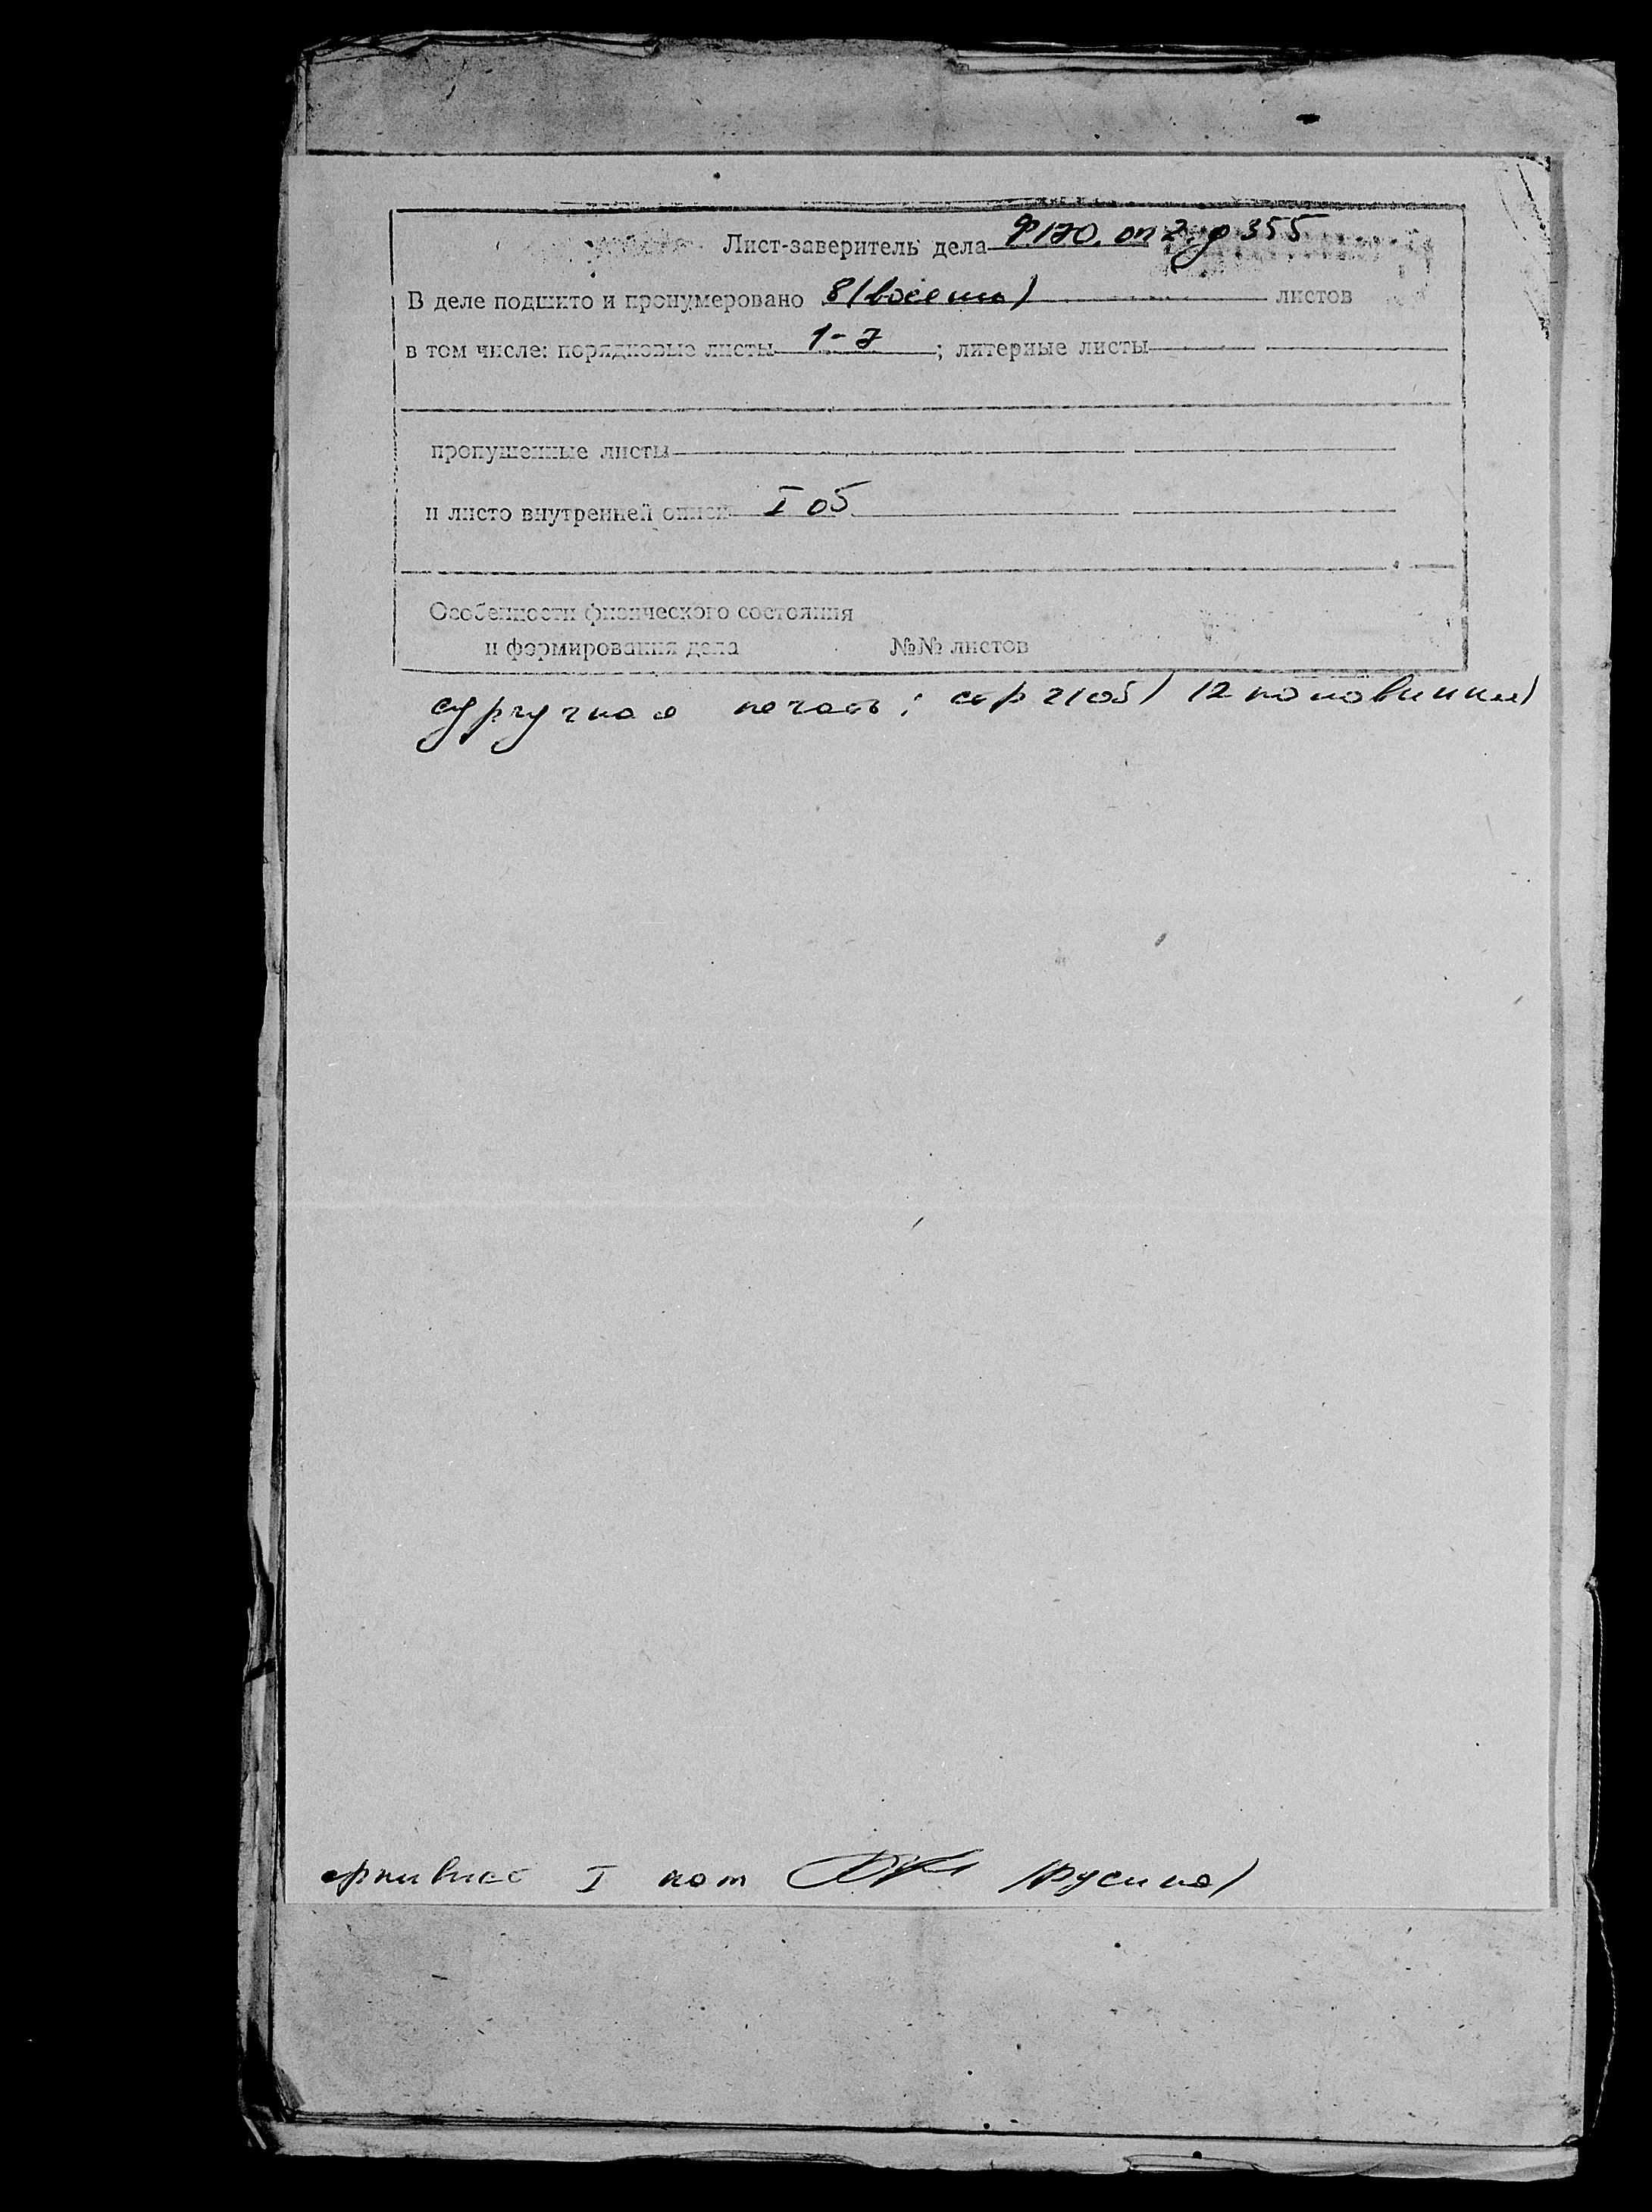 Лист-заверитель дела Ф170. оп 2. д 355
В деле подшито и пронумеровано 8 (восемь) листов
в том числе: порядковые листы 1-7; литерные листы
пропущенные листы
и листо внутренней описи I об
Особенности физического состояния
и формирования дела №№ листов
сургучная печать; стр 2 (об) (2 половинки)
архивист I кат (Русина)